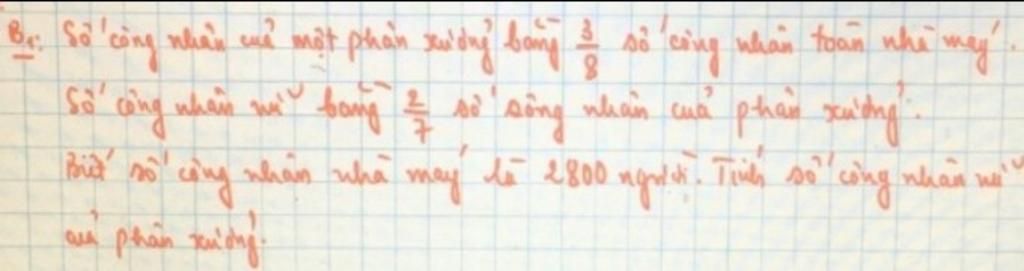 B1: Số công nhân của một phân xưởng bằng 3/8 số công nhân toàn nhà máy.
Số công nhân nữ bằng 2/7 số sông nhân của phân xưởng.
Biết số công nhân nhà máy là 2800 người. Tính số công nhân nữ
của phân xưởng.